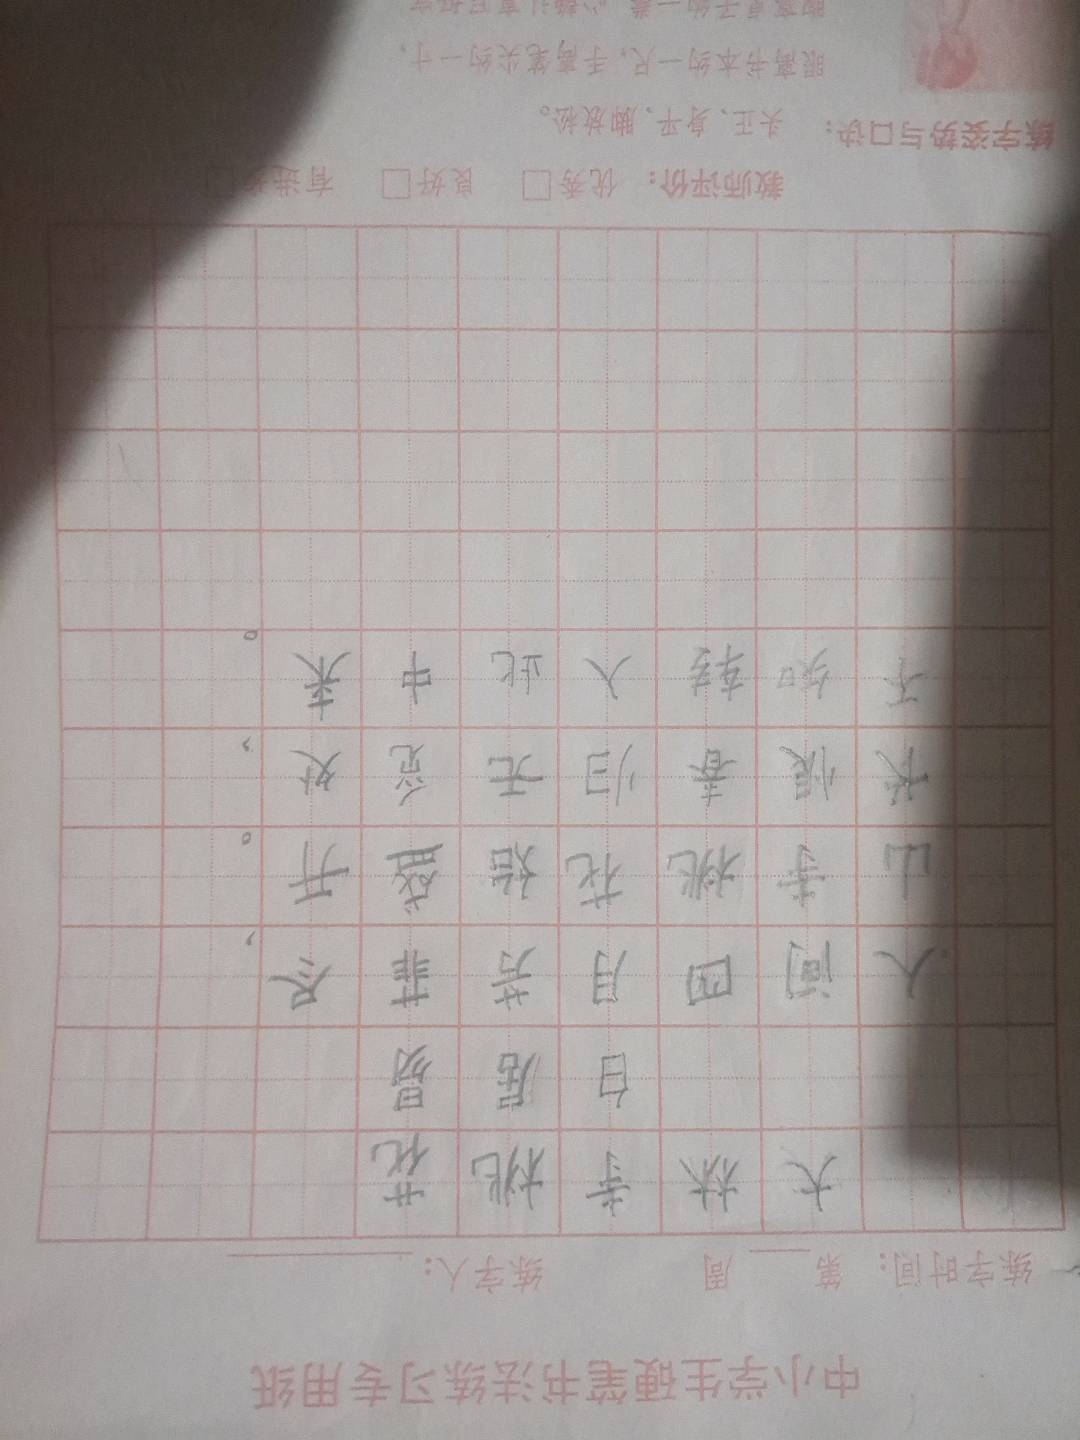 中小学生硬笔书法练习专用纸
练字时间：第 周 练字人：
大林寺桃花
白居易
人间四月芳菲尽，
山寺桃花始盛开。
长恨春归无觅处，
不知转入此中来。
教师评价：优秀□ 良好□ 有进步□
练字姿势与口诀：头正、身平、脚放松。
眼离书本约一尺，手离笔尖约一寸，